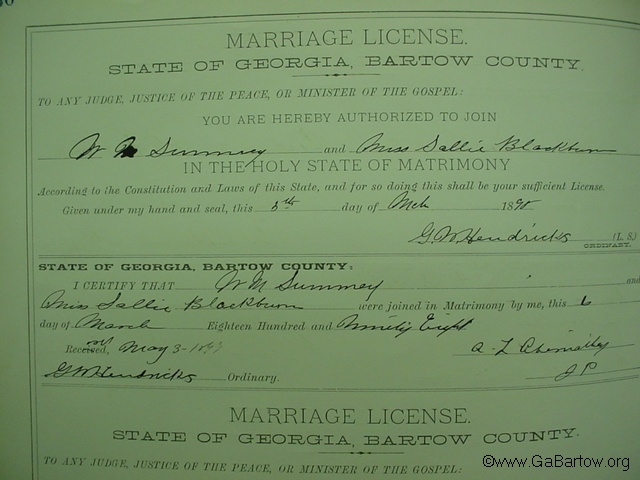 MARRIAGE LICENSE.
STATE OF GEORGIA, BARTOW COUNTY.
TO ANY JUDGE, JUSTICE OF THE PEACE, OR MINISTER OF THE GOSPEL:
YOU ARE HEREBY AUTHORIZED TO JOIN
W M Summey and Miss Sallie Blackburn
IN THE HOLY STATE OF MATRIMONY
According to the Constitution and Laws of this State, and for so doing this shall be your sufficient License.
Given under my hand and seal, this 5th day of Mch 1898
G W Hendricks (L. S.)
ORDINARY.
STATE OF GEORGIA, BARTOW COUNTY:
I CERTIFY THAT W M Summey and
Miss Sallie Blackburn were joined in Matrimony by me, this 6
day of March Eighteen Hundred and Ninety Eight
Received, May 3- A L Abernathy
G W Hendricks Ordinary. J P
MARRIAGE LICENSE.
STATE OF GEORGIA, BARTOW COUNTY.
TO ANY JUDGE, JUSTICE OF THE PEACE, OR MINISTER OF THE GOSPEL:
©www.GaBartow.org